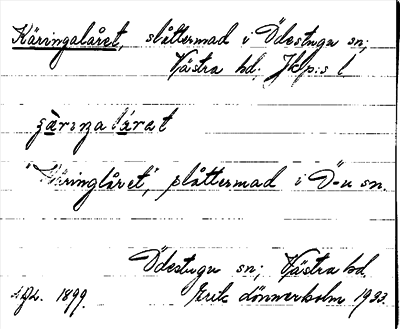 Käringalåret, slåttermad i Ödestugu sn;
Västra hd; Jkp:s l
"Käringlåret", slåttermad i Ö-u sn.
Ödestugu sn; Västra hd.
1899. Erik Lönnerholm 1933.